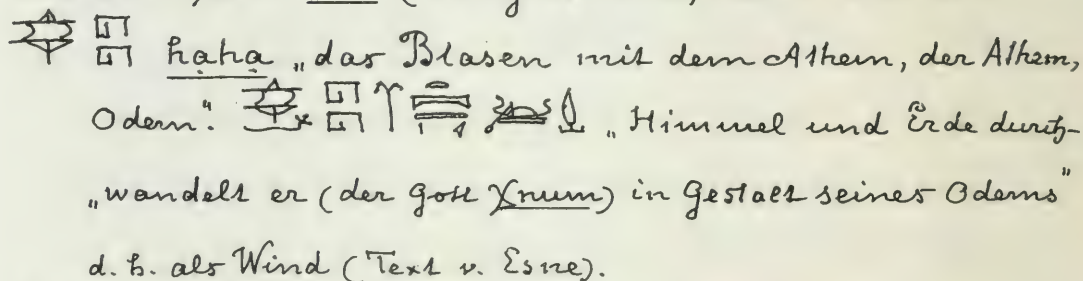 haha „das Blasen mit dem Athem, der Athem,
Odem“. „Himmel und Erde durch-
„wandelt er (der Gott Xnum) in Gestalt seines Odems“
d. h. als Wind (Text v. Esne).